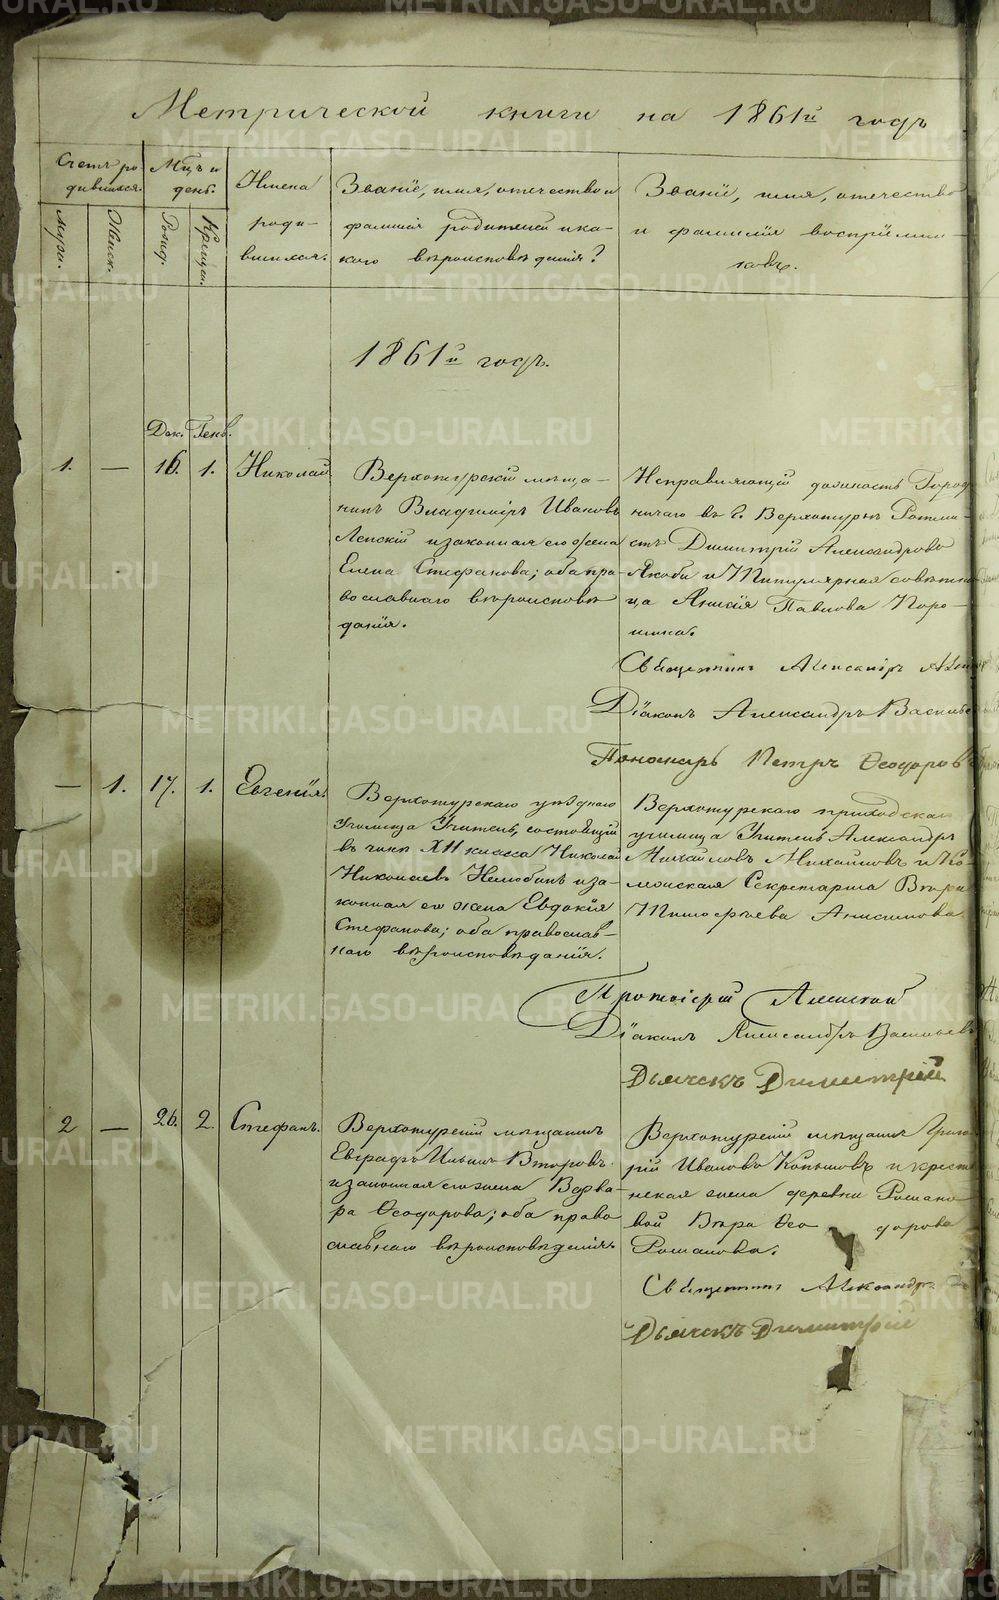 Метрической книги на 1861й годъ
Счетъ ро-
дившихся.
Мцъ и
день.
Имена
роди-
вшихся.
Званіе, имя, отечество и
фамилія родителей и ка-
кого вѣроисповѣданія?
Званіе, имя, отечество
и фамилія воспріемни-
ковъ.
Муж.
Женск.
Рожд.
Крещен.
1861й годъ.
Дек. Генв.
1. — 16. 1. Николай
Верхотурскій мѣща-
нинъ Владиміръ Ивановъ
Лепскій и законная его жена
Елена Стефанова; оба пра-
вославнаго вѣроисповѣ
данія.
Исправляющій должность Город
ничаго въ г. Верхотурьѣ Ротми-
стръ Димитрій Александровъ
Якоби и Титулярная совѣтни
ца Анисія Павлова Поро-
шина.
Священникъ Александръ
Діаконъ Александръ Василье
Пономарь Петръ Ѳеодоровъ
— 1. 17. 1. Евгенія.
Верхотурскаго уѣзднаго
Училища Учитель, состоящій
въ чинѣ XII класса Николай
Николаевъ Нелюбинъ и за-
конная его жена Евдокія
Стефанова; оба православ-
наго вѣроисповѣданія.
Верхотурскаго приходскаго
училища Учитель Александръ
Михайловъ Михайловъ и Ко-
лежская Секретарша Вѣра
Тимофѣева Анисимова.
Протоіерей
Діаконъ Александръ Васильевъ
Дьячекъ Димитрій
2 — 26. 2. Стефанъ.
Верхотурскій мѣщанинъ
Евграфъ Ильинъ Второвъ
и законная его жена Варва-
ра Ѳеодорова; оба право
славнаго вѣроисповѣданія.
Верхотурскій мѣщанинъ Григо
рій Ивановъ Копыловъ и крестья
нская жена деревни Романо
вой Вѣра Ѳео дорова
Романова.
Священникъ Александръ
Дьячекъ Димитрій
METRIKI.GASO-URAL.RU